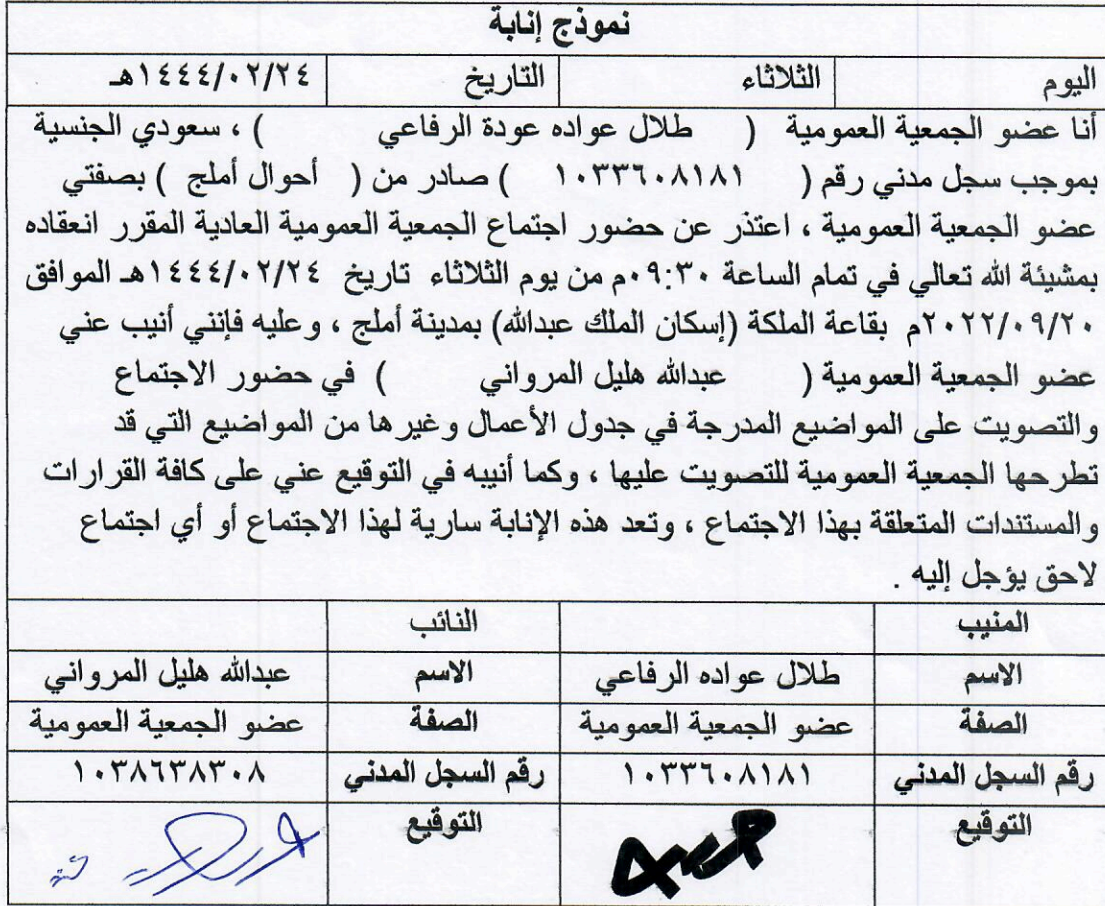 نموذج إنابة
اليوم الثلاثاء التاريخ ١٤٤٤/٠٢/٢٤هـ
أنا عضو الجمعية العمومية ( طلال عواده عودة الرفاعي ) ، سعودي الجنسية
بموجب سجل مدني رقم ( ١٠٣٣٦٠٨١٨١ ) صادر من ( أحوال أملج ) بصفتي
عضو الجمعية العمومية ، اعتذر عن حضور اجتماع الجمعية العمومية العادية المقرر انعقاده
بمشيئة الله تعالي في تمام الساعة ٠٩:٣٠م من يوم الثلاثاء تاريخ ١٤٤٤/٠٢/٢٤هـ الموافق
٢٠٢٢/٠٩/٢٠م بقاعة الملكة (إسكان الملك عبدالله) بمدينة أملج ، وعليه فإنني أنيب عني
عضو الجمعية العمومية ( عبدالله هليل المرواني ) في حضور الاجتماع
والتصويت على المواضيع المدرجة في جدول الأعمال وغيرها من المواضيع التي قد
تطرحها الجمعية العمومية للتصويت عليها ، وكما أنيبه في التوقيع عني على كافة القرارات
والمستندات المتعلقة بهذا الاجتماع ، وتعد هذه الإنابة سارية لهذا الاجتماع أو أي اجتماع
لاحق يؤجل إليه .
المنيب النائب
الاسم طلال عواده الرفاعي الاسم عبدالله هليل المرواني
الصفة عضو الجمعية العمومية الصفة عضو الجمعية العمومية
رقم السجل المدني ١٠٣٣٦٠٨١٨١ رقم السجل المدني ١٠٣٨٦٣٨٣٠٨
التوقيع التوقيع